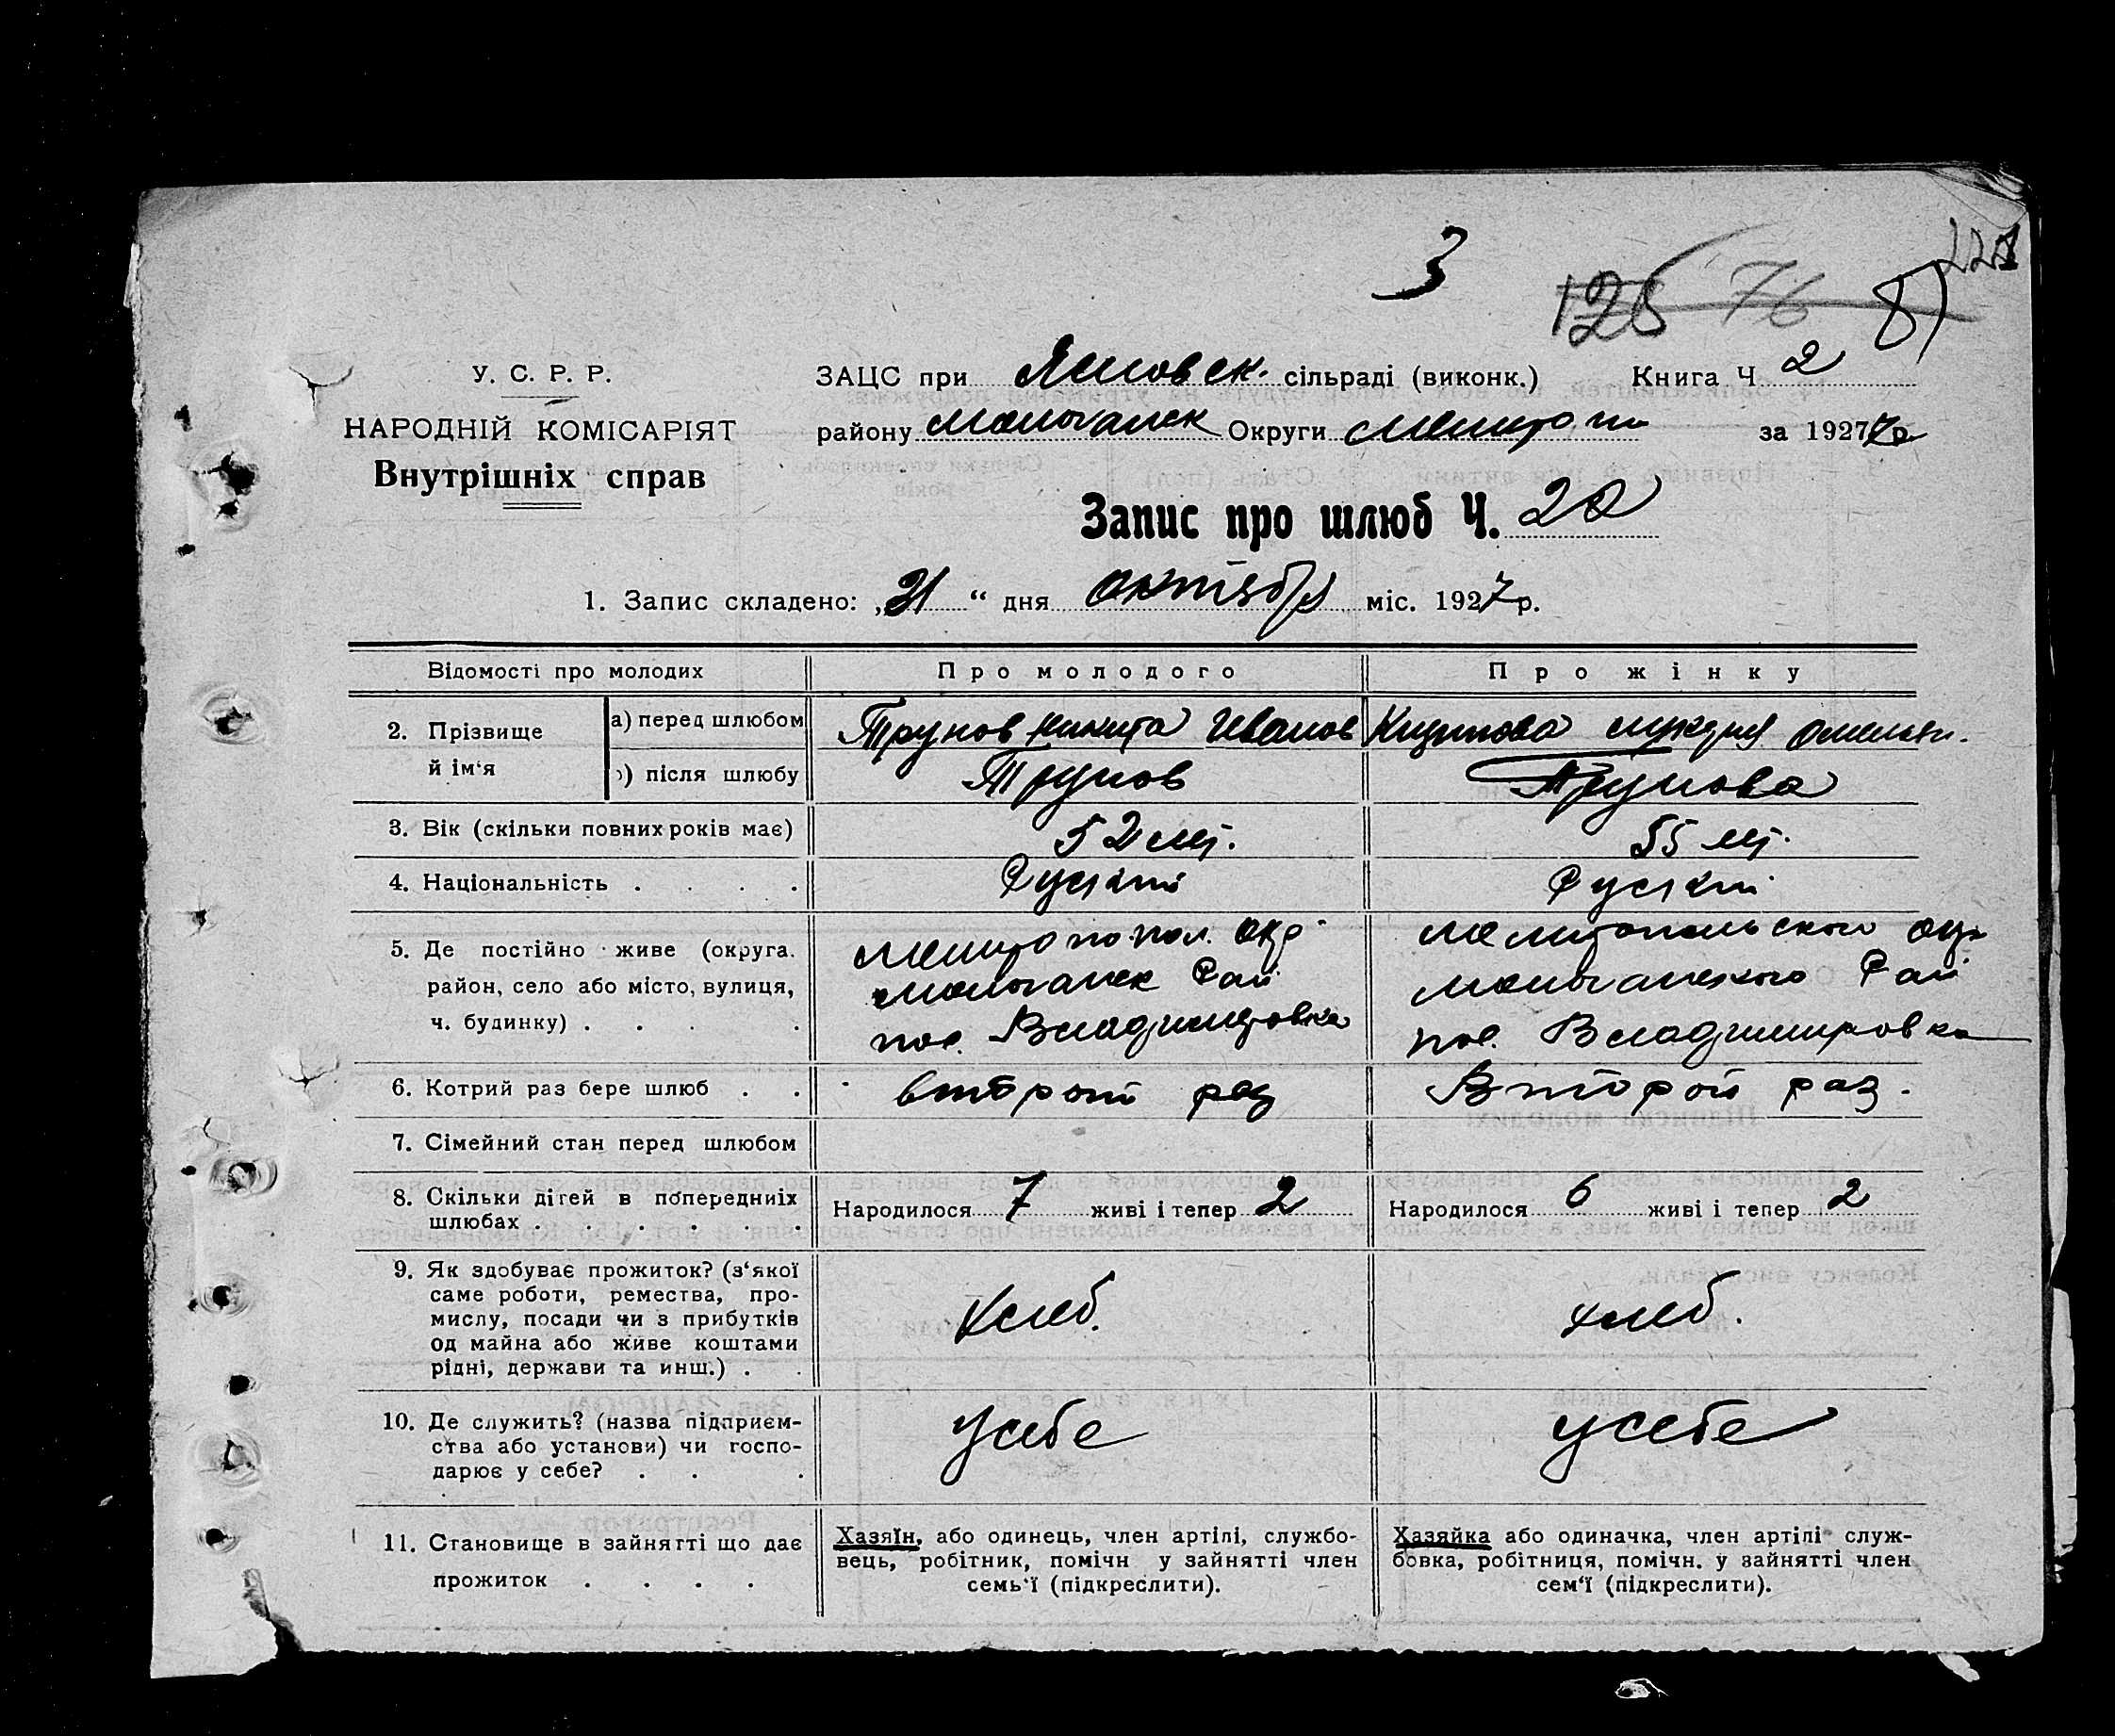 3
126 76 81 221
У. С. Р. Р.
НАРОДНІЙ КОМІСАРІЯТ
Внутрішніх справ
ЗАЦС при сільраді (виконк.) Книга Ч 2
району Округи за 1927 7 р
Запис про шлюб Ч. 22
1. Запис складено: „21“ дня октябр міс. 1927 р.
Відомості про молодих Про молодого Про жінку
2. Прізвище й ім‘я
а) перед шлюбом Трунов Никита Иванов
) після шлюбу Трунов Трунова
3. Вік (скільки повних років має) 52 лет. 55 лет.
4. Національність . . . . Руский Руский
5. Де постійно живе (округа.
район, село або місто, вулиця,
ч. будинку) . . . .
Окр Мелитопольского Окр
Рай Рай
пос. Владимировка пос. Владимировка
6. Котрий раз бере шлюб . . второй раз Второй раз.
7. Сімейний стан перед шлюбом
8. Скільки дітей в попередниіх
шлюбах . . . . . .
Народилося 7 живі і тепер 2 Народилося 6 живі і тепер 2
9. Як здобуває прожиток? (з‘якої
саме роботи, ремества, про-
мислу, посади чи з прибутків
од майна або живе коштами
рідні, держави та инш.) . .
хлеб. хлеб.
10. Де служить? (назва підприєм-
ства або установи) чи госпо-
дарює у себе? . . .
у себе у себе
11. Становище в зайнятті що дає
прожиток . . . .
Хазяїн, або одинець, член артілі, службо-
вець, робітник, помічн у зайнятті член
семь‘ї (підкреслити).
Хазяйка або одиначка, член артілі служ-
бовка, робітниця, помічн. у зайнятті член
сем‘ї (підкреслити).